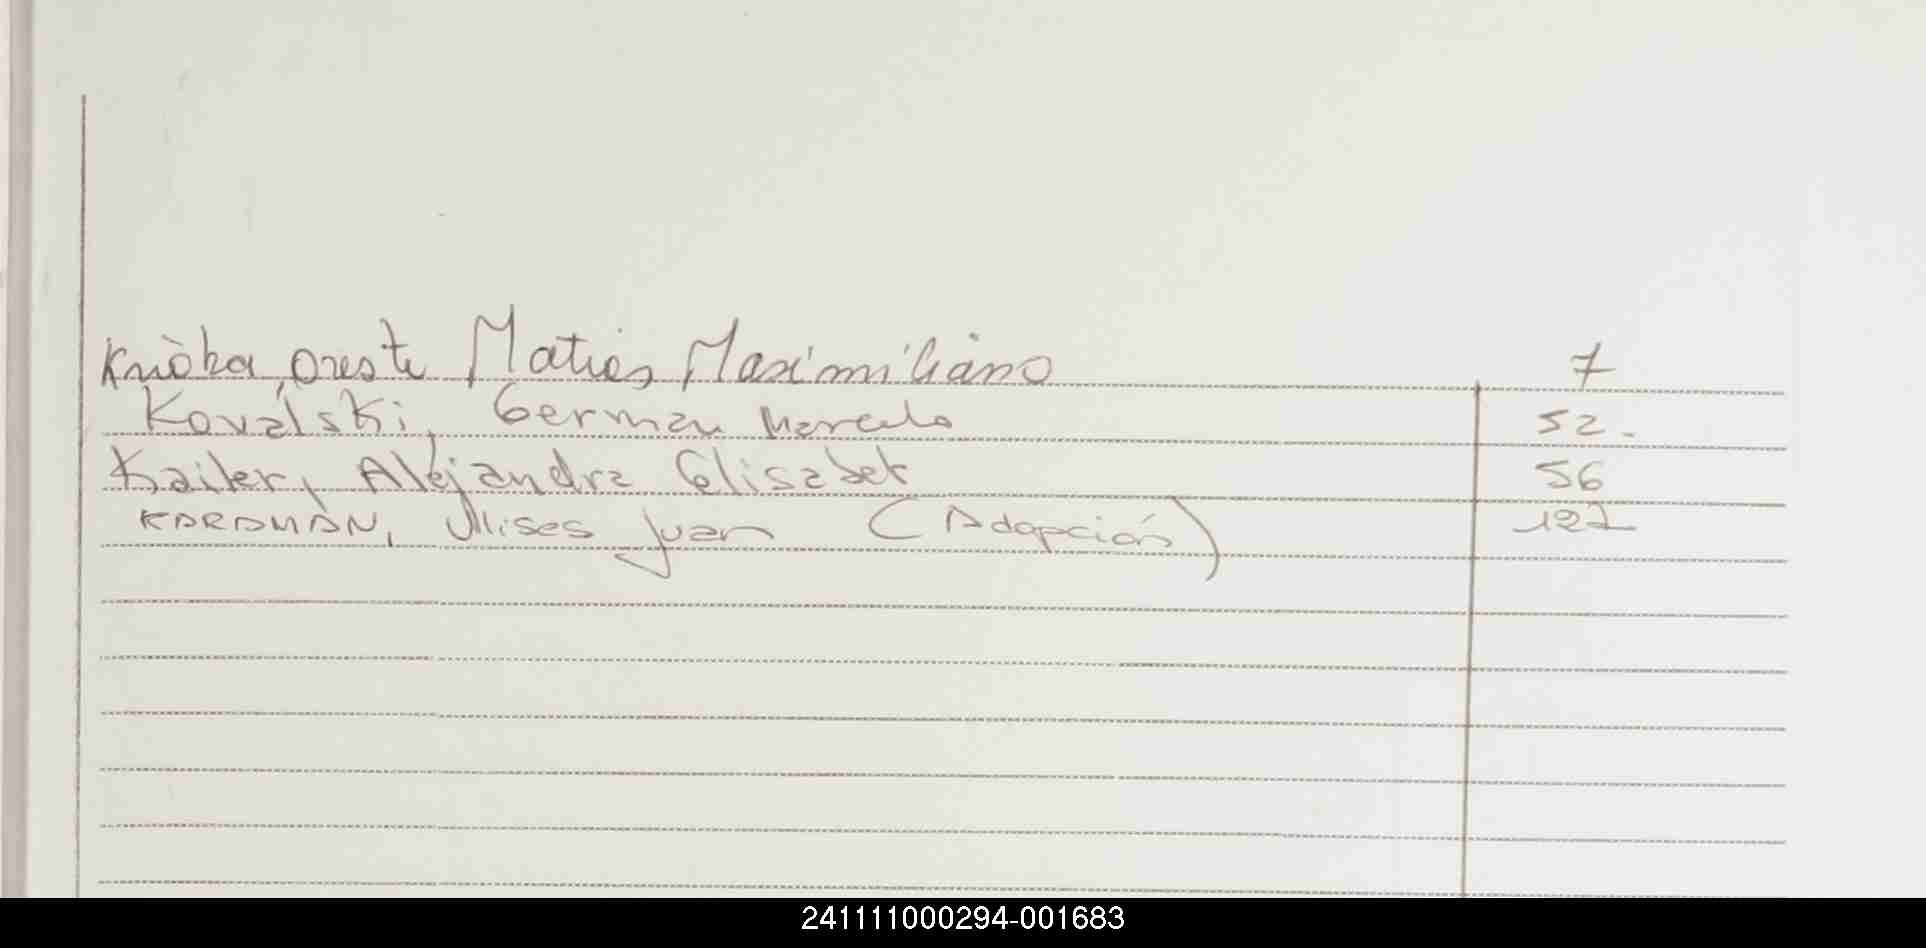 Oreste Matias Maximiliano 7
Kovalski, German Marcelo 52.
Kailer, Alejandra Elisabet 56
KARAMAN, Ulises Juan (Adopción) 127
241111000294-001683